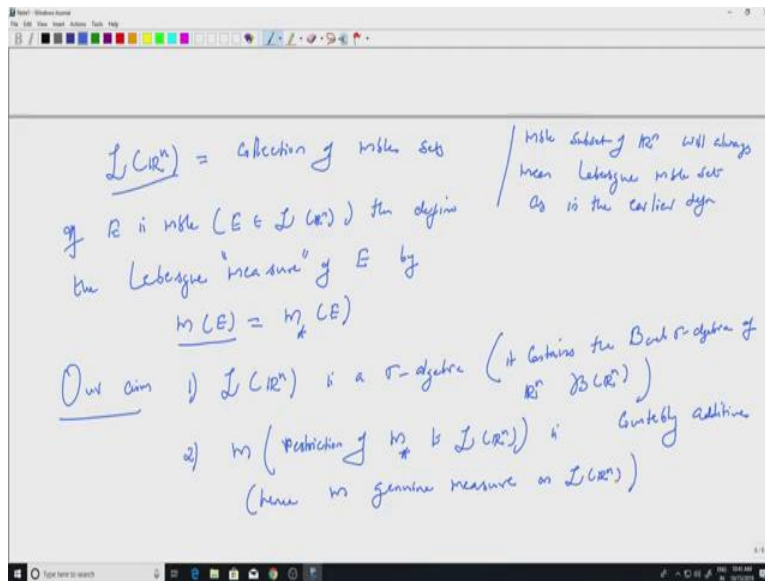 Note1 - Windows Journal
File Edit View Insert Actions Tools Help
L(ℝⁿ) = Collection of mble sets
mble subset of ℝⁿ will always
mean Lebesgue mble sets
as in the earlier defn
If E is mble (E ∈ L(ℝⁿ)) then define
the Lebesgue "measure" of E by
m(E) = m_*(E)
Our aim 1) L(ℝⁿ) is a σ-algebra (it contains the Borel σ-algebra of
ℝⁿ B(ℝⁿ))
2) m (restriction of m_* to L(ℝⁿ)) is countably additive
(hence m genuine measure on L(ℝⁿ))
Type here to search